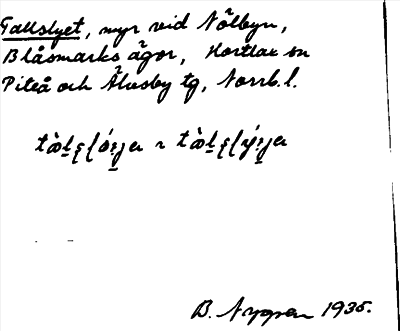 Tallslyet, myr vid Nölbyn,
Blåsmarks ägor, Hortlax sn
Piteå och Älvsby tg, Norrb.l.
B. Nygren 1935.